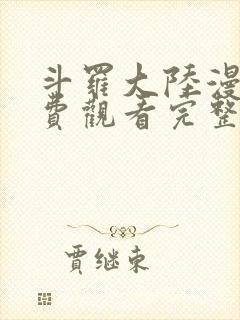 斗羅大陸漫
費觀看完整
賈继東